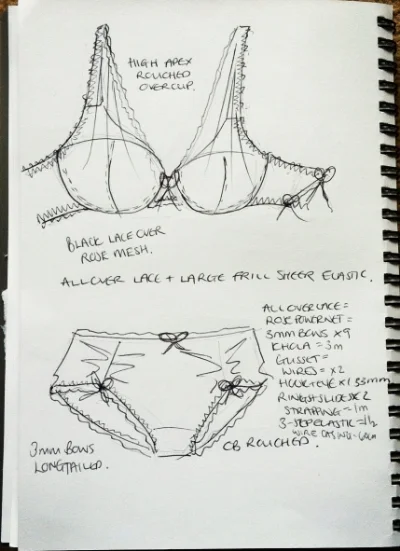 HIGH APEX
ROUCHED
OVERCUP.
BLACK LACE OVER
ROSE MESH.
ALL OVER LACE + LARGE FRILL SHEER ELASTIC.
ALL OVER LACE =
ROSE POWERNET =
3MM BOWS x 9
= 3m
GUSSET =
WIRES = x2
HOOK+EYE x1 33mm
RINGS+SLIDES x 2
STRAPPING = 1m
3-STEP ELASTIC = 1½
WIRE CASING =
3MM BOWS
LONGTAILED.
CB ROUCHED.